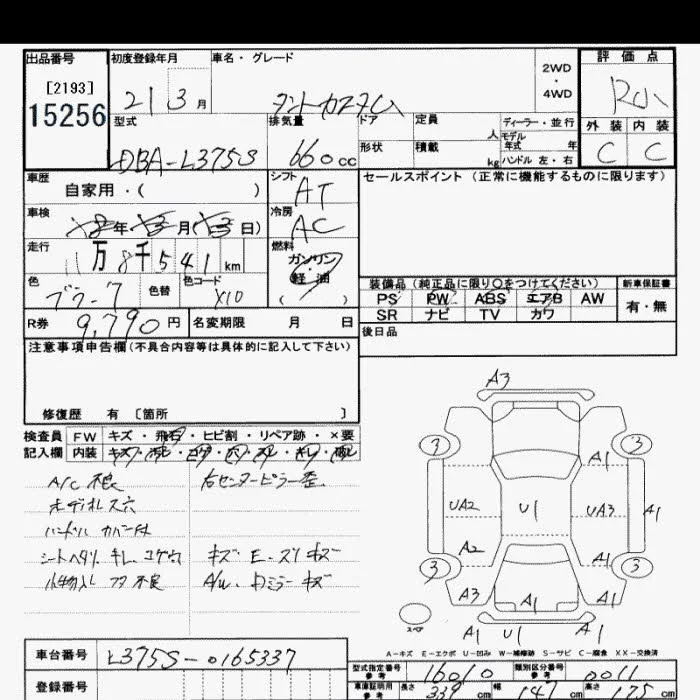 出品番号
[2193]
15256
初度登録年月
21 3 月
車名・グレード
タントカスタム
2WD
・
4WD
評価点
R小
外装 内装
C C
型式
DBA-L375S
排気量
660cc
ドア
形状
定員
人
積載
kg
ディーラー・並行
モデル
年式 年
ハンドル 左・右
車歴
自家用・( )
シフト
AT
セールスポイント (正常に機能するものに限ります)
車検
年 月 ( 日)
冷房
AC
走行
11万 8千 541 km
燃料
ガソリン
・
軽油
( )
色
色替
色コード
X10
装備品 (純正品に限り○をつけてください)
PS PW ABS エアB AW
SR ナビ TV カワ
新車保証書
有・無
R券 9,790 円
名変期限 月 日
後日品
注意事項申告欄(不具合内容等は具体的に記入して下さい)
修復歴 有 [箇所 ]
検査員
記入欄
FW キズ・飛石・ヒビ割・リペア跡・×要
内装 キズ・汚レ・コゲ・穴・スレ・キレ・破レ
A/C 不良
オーディオレス穴
ハンドル カバー付
シートヘタリ、キレ、コゲ穴
小物入レ フタ 不良
右センターピラー歪
キズ E、スリキズ
A/W、Dミラーキズ
A3
3
3
A1
UA2
U1
UA3
A1
A2
A1
3
3
A3
A1
A1
U1
A1
スペア
A-キズ E-エクボ U-凹み W-補修跡 S-サビ C-腐食 XX-交換済
車台番号 L375S-0165337
登録番号
型式指定番号
参考
16010
類別区分番号
参考
0011
車庫証明用
参考
長さ 339 cm
幅 147 cm
高さ 175 cm